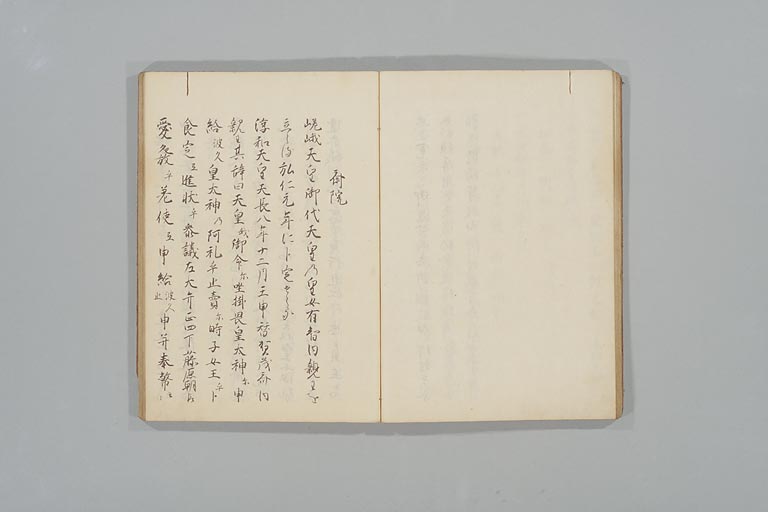 斎院
嵯峨天皇御代天皇乃皇女有智内親王を
立らる弘仁元年に卜定せらる
淳和天皇天長八年十二月壬申替賀茂斎内
親王其辞曰天皇我御命尓坐掛畏皇太神尓申
給波久皇太神乃阿礼乎止賣尓時子女王乎卜
食定弖進状乎参議左大弁正四下藤原朝臣
愛發乎差使弖申給波久止申并奉幣